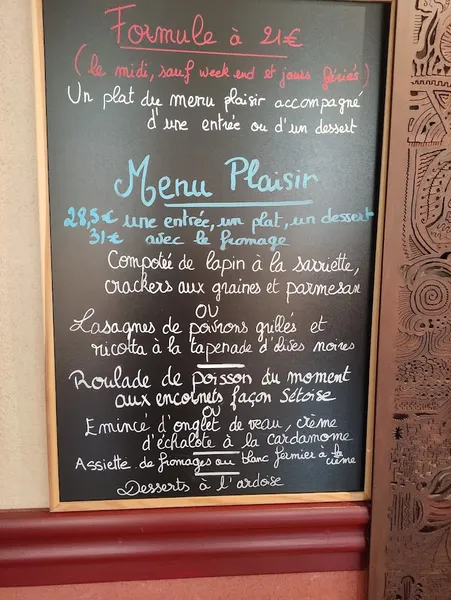 Formule à 21€
(le midi, sauf week end et jours fériés)
Un plat du menu plaisir accompagné
d'une entrée ou d'un dessert
Menu Plaisir
28,5€ une entrée, un plat, un dessert
31€ avec le fromage
Compotée de lapin à la sarriette,
crackers aux graines et parmesan
OU
Lasagnes de poivrons grillés et
ricotta à la tapenade d'olives noires
Roulade de poisson du moment
aux encornets façon Sétoise
OU
Emincé d'onglet de veau, crème
d'échalote à la cardamome
Assiette de fromages ou blanc fermier à la
crème
Desserts à l'ardoise